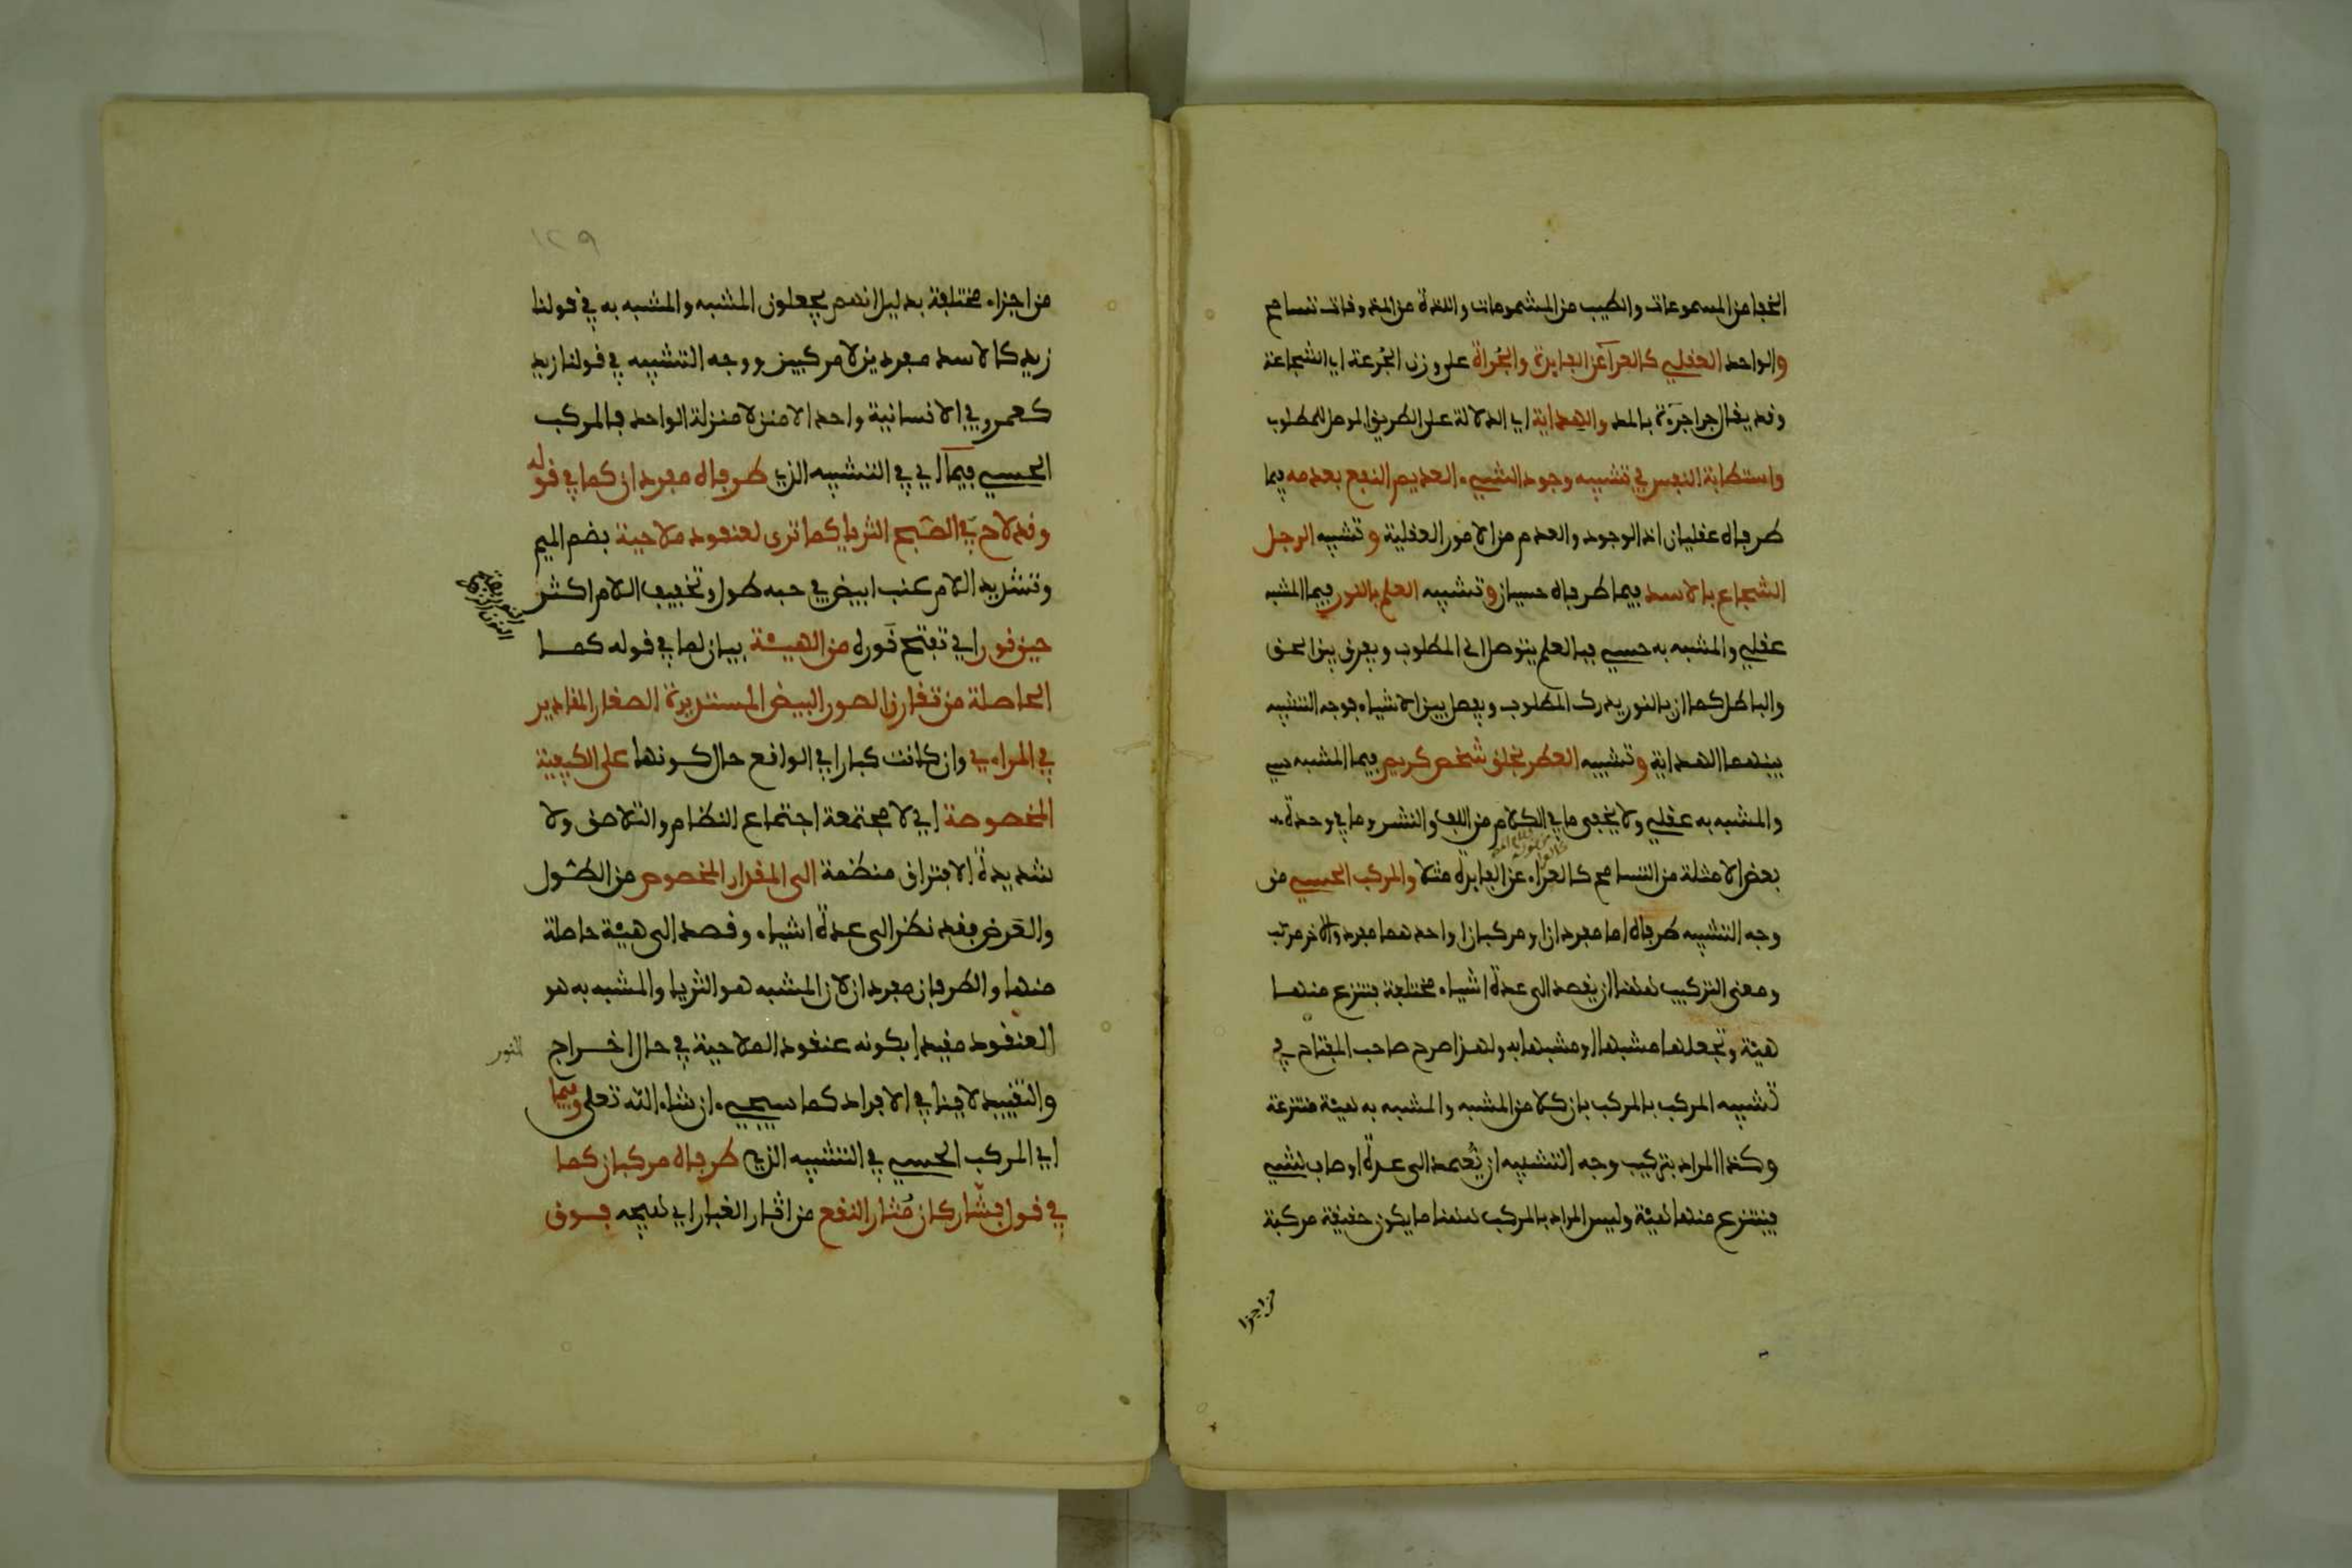 الخفا من المسموعات والطيب من المشمومات واللذة من المذوقات تسامح
والواحد العقلي كالعرآ عن الفايدة والجُراة على وزن الجُرعة اي الشجاعة
وقد يقال جرا جرَءة بالمد والهداية اي الدلالة على الطريق الموصل للمطلوب
واستطابة النفس في تشبيه وجود الشيء العديم النفع بعدمه فيما
طرفاه عقليان اذ الوجود والعدم من الامور العقلية وتشبيه الرجل
الشجاع بالاسد فيما طرفاه حسيان وتشبيه العلم بالنور فيما المشبه
عقلي والمشبه به حسي فبالعلم يتوصل الى المطلوب ويفرق بين الحق
والباطل كما ان بالنور يدرك المطلوب ويفصل بين الاشياء فوجه التشبيه
بينهما الهداية وتشبيه العطر بخلق شخص كريم فيما المشبه حسي
والمشبه به عقلي ولا يخفى ما في الكلام من اللف والنشر وما في وحدة
بعض الامثلة من التسامح كالعراء عن الفايدة مثلا والمركب الحسي من
وجه التشبيه طرفاه اما مفردان او مركبان او احدهما مفرد والاخر مركب
ومعنى التركيب هاهنا ان يقصد الى عدة اشياء مختلفة فتنزع منها
هيئة وتجعلها مشبها او مشبها به ولهذا صرح صاحب المفتاح في
تشبيه المركب بالمركب بان كلا من المشبه والمشبه به هيئة منتزعة
وكذا المراد بتركيب وجه التشبيه ان يُعمد الى عدة اوصاف لشيء
فينتزع منها هيئة وليس المراد بالمركب هاهنا ما يكون حقيقة مركبة
من اجزا
١٢٩
من اجزاء مختلفة بدليل انهم يجعلون المشبه والمشبه به في قولنا
زيد كالاسد مفردين لا مركبين ووجه التشبيه في قولنا زيد
كعمرو في الانسانية واحدا لا منزلا منزلة الواحد فالمركب
الحسي فيما اي في التشبيه الذي طرفاه مفردان كما في قوله
وقد لاح في الصّبح الثريا كما ترى لعنقود ملاحية بضم الميم
وتشديد اللام عنب ابيض في حبه طول وتخفيف اللام اكثر
حين نور اي تفتح نَوره من الهيئة بيان لما في قوله كما
الحاصلة من تقارن الصور البيض المستديرة الصغار المقادير
في المراءي وان كانت كبارا في الواقع حال كونها على الكيفية
المخصوصة اي لا مجتمعة اجتماع النظام والتلاصق ولا
شديدة الافتراق منظمة الى المقدار المخصوص من الطول
والعَرض فقد نظر الى عدة اشياء وقصد الى هيئة حاصلة
منها والطرفان مفردان لان المشبه هو الثريا والمشبه به هو
العنقود مقيدا بكونه عنقود الملاحية في حال اخراج
النور
والتقييد لا ينافي الافراد كما سيجيء ان شاء الله تعلى وفيما
اي المركب الحسي في التشبيه الذي طرفاه مركبان كما
في قول بشّار كان مُثار النقع من اثار الغبار اي هيجه فوق